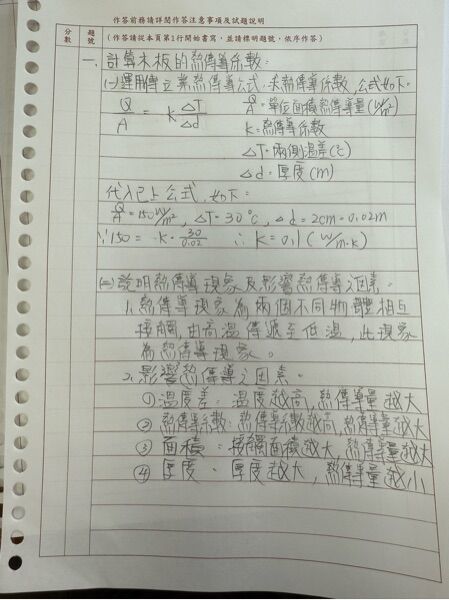 作答前務請詳閱作答注意事項及試題說明
分數
題號
(作答請從本頁第1行開始書寫，並請標明題號，依序作答)
一、計算木板的熱傳導係數:
(一)運用傅立葉熱傳導公式,求熱傳導係數,公式如下:
Q/A = K ΔT/Δd
Q/A=單位面積熱傳導量(W/m²)
K=熱傳導係數
ΔT=兩側溫差(℃)
Δd=厚度(m)
代入已上公式,如下:
Q/A=150W/m², ΔT=30℃, Δd=2cm=0.02m
∵150 = K·30/0.02 ∴K=0.1(W/m·K)
(二)說明熱傳導現象及影響熱傳導之因素。
1.熱傳導現象為兩個不同物體相互
接觸由高溫傳遞至低溫,此現象
為熱傳導現象。
2.影響熱傳導之因素。
①溫度差:溫度越高,熱傳導量越大
②熱傳導係數:熱傳導係數越高,熱傳導量越大
③面積:接觸面積越大,熱傳導量越大
④厚度:厚度越大,熱傳導量越小